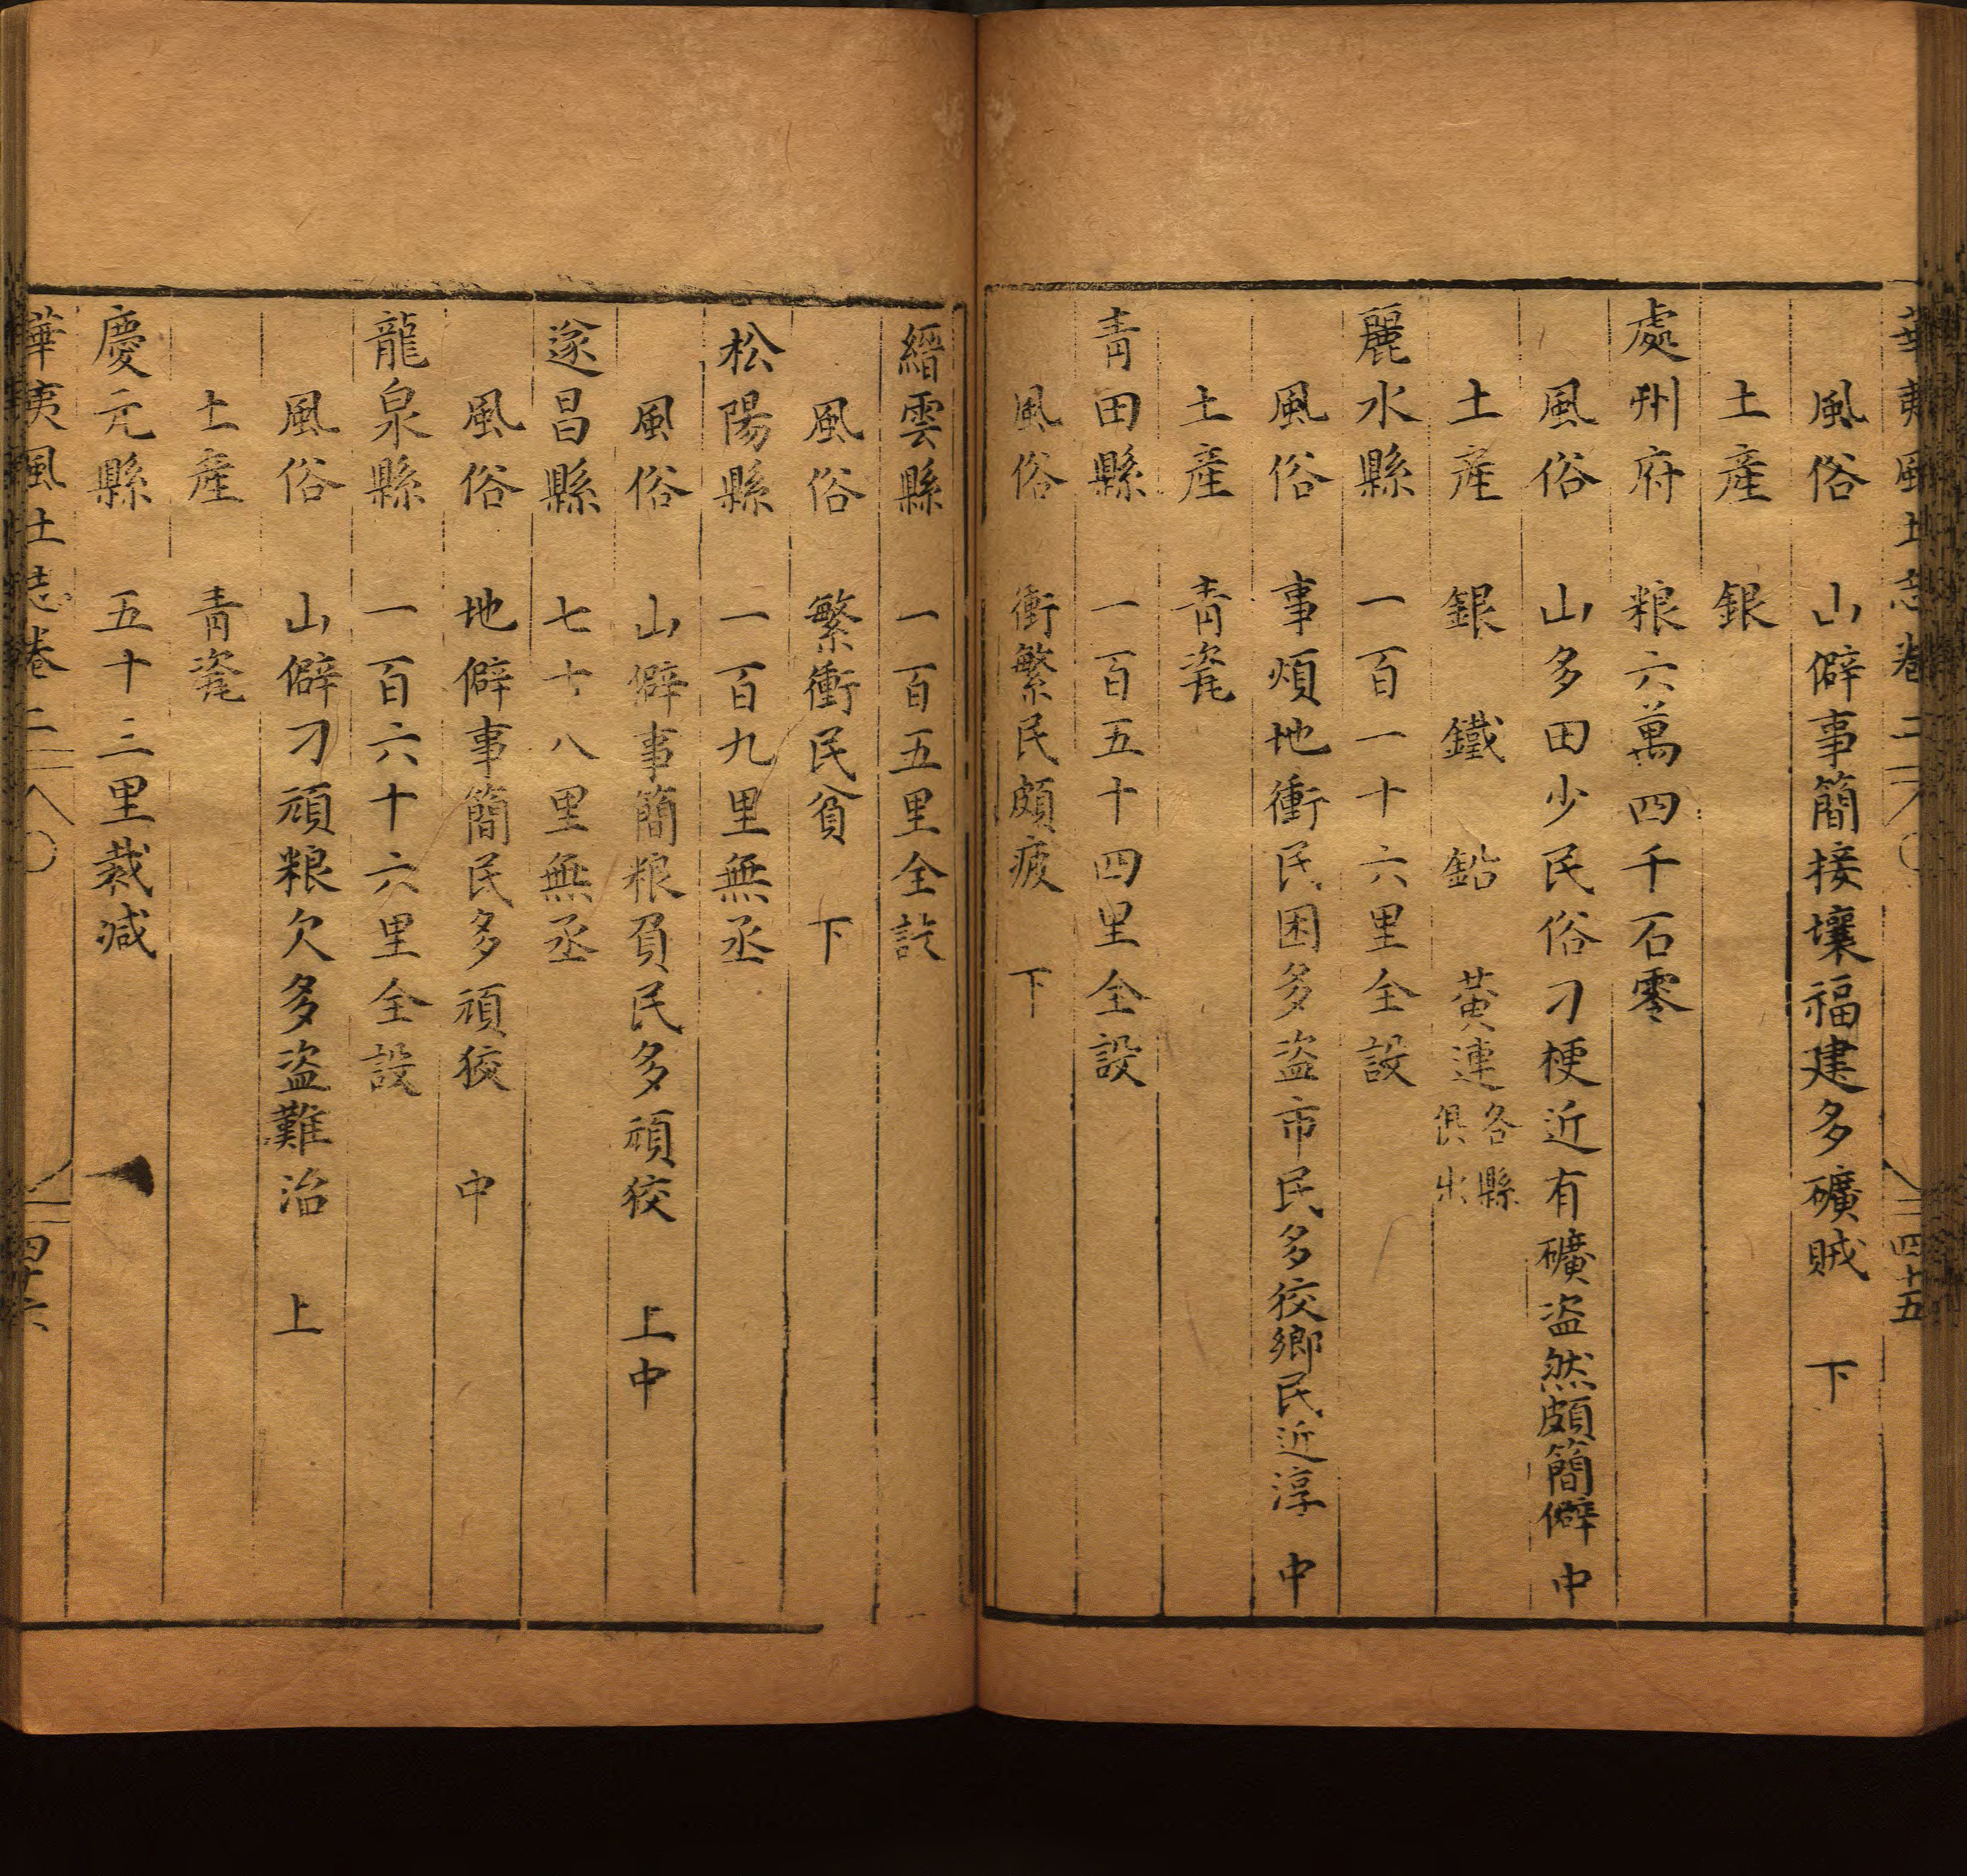 華夷風土志卷二 四十五
風俗 山僻事簡接壤福建多礦賊 下
土產 銀
處州府 粮六萬四千石零
風俗 山多田少民俗刁梗近有礦盗然頗簡僻 中
土產 銀 鐵 鉛 黄連各縣俱出
麗水縣 一百一十六里全設
風俗 事煩地衝民困多盗市民多狡鄉民近淳 中
土產 青瓷
青田縣 一百五十四里全設
風俗 衝繁民頗疲 下
縉雲縣 一百五里全設
風俗 繁衝民貧 下
松陽縣 一百九里無丞
風俗 山僻事簡粮負民多頑狡 上中
遂昌縣 七十八里無丞
風俗 地僻事簡民多頑狡 中
龍泉縣 一百六十六里全設
風俗 山僻刁頑粮欠多盗難治 上
土產 青瓷
慶元縣 五十三里裁減
華夷風土志卷二 四十六